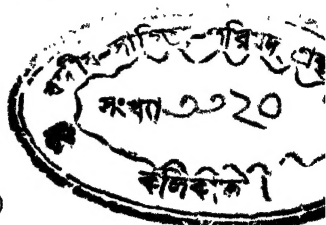 বঙ্গীয়-সাহিত্য-পরিষদ্
সংখ্যা ৩৩২০
কলিকাতা।